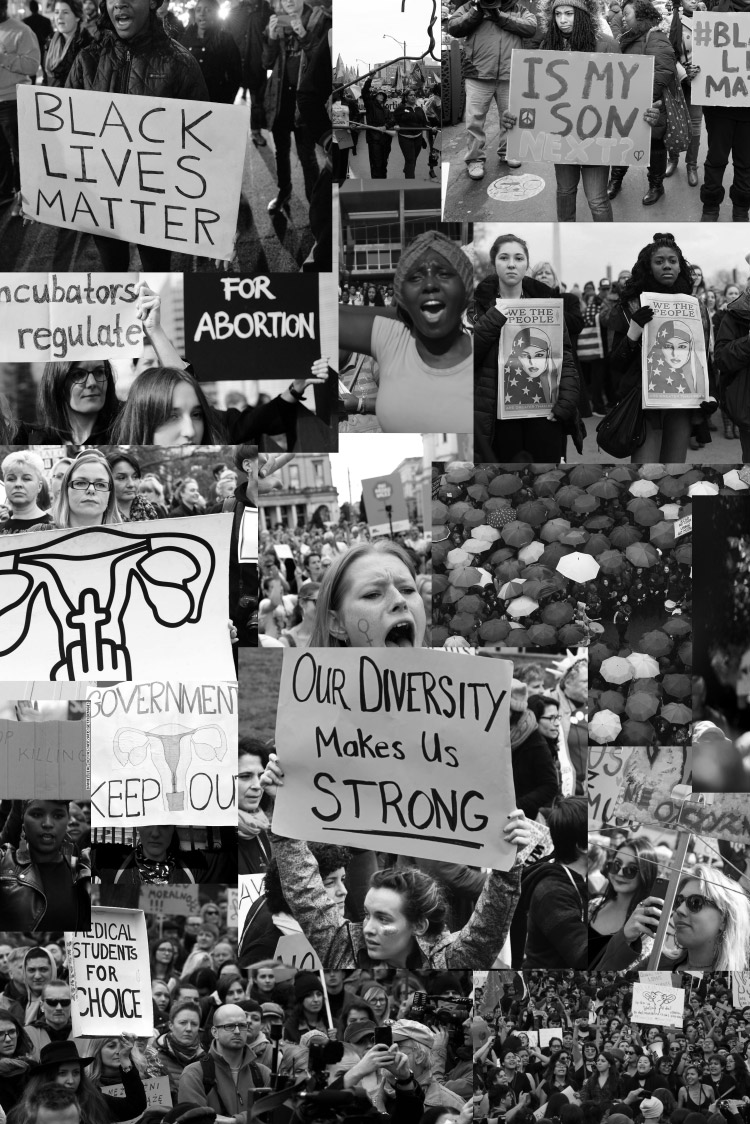 BLACK
LIVES
MATTER
IS MY
SON
NEXT?
#BLA
LI
MA
ncubators
regulate
FOR
ABORTION
WE THE
PEOPLE
WE THE
PEOPLE
GOVERNMENT
KEEP OU
KILLING
OUR DIVERSITY
Makes Us
STRONG
MEDICAL
STUDENTS
FOR
CHOICE
NO